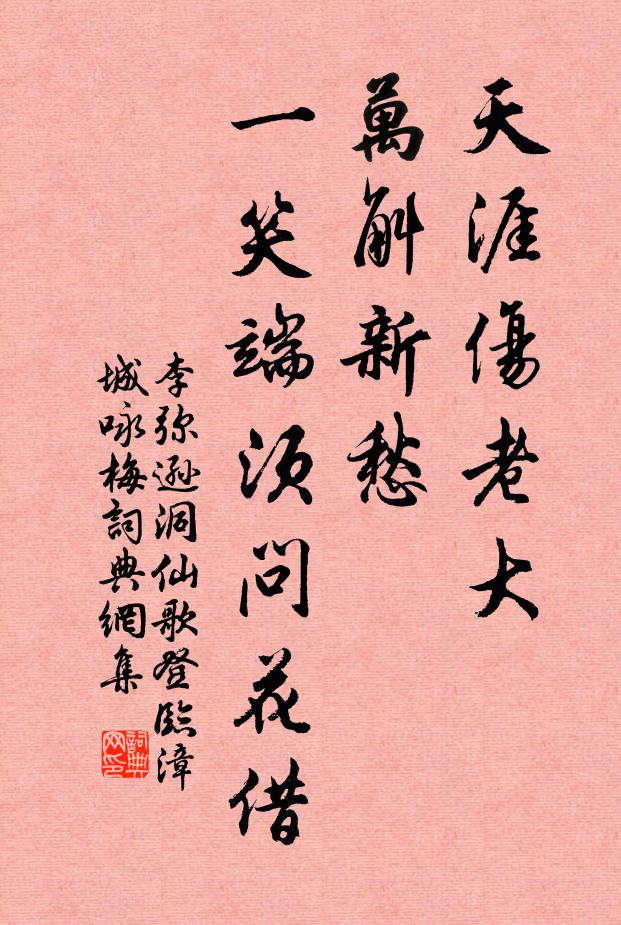 天涯傷老大
萬斛新愁
一笑端須問花借
李弥遜洞仙歌登臨漳
城咏梅詞典網集
詞典網印